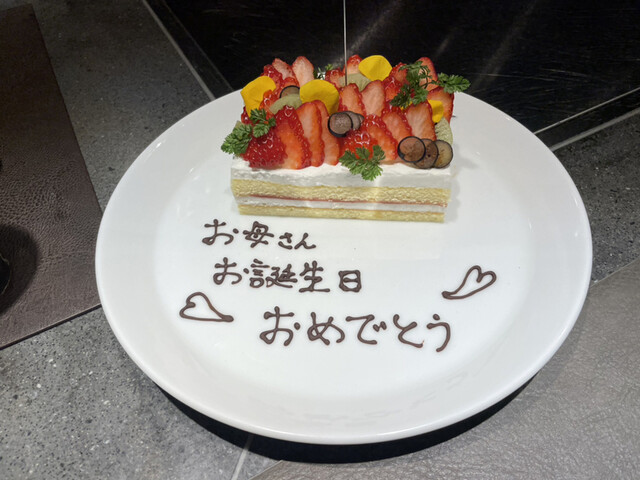 お母さん
お誕生日
おめでとう